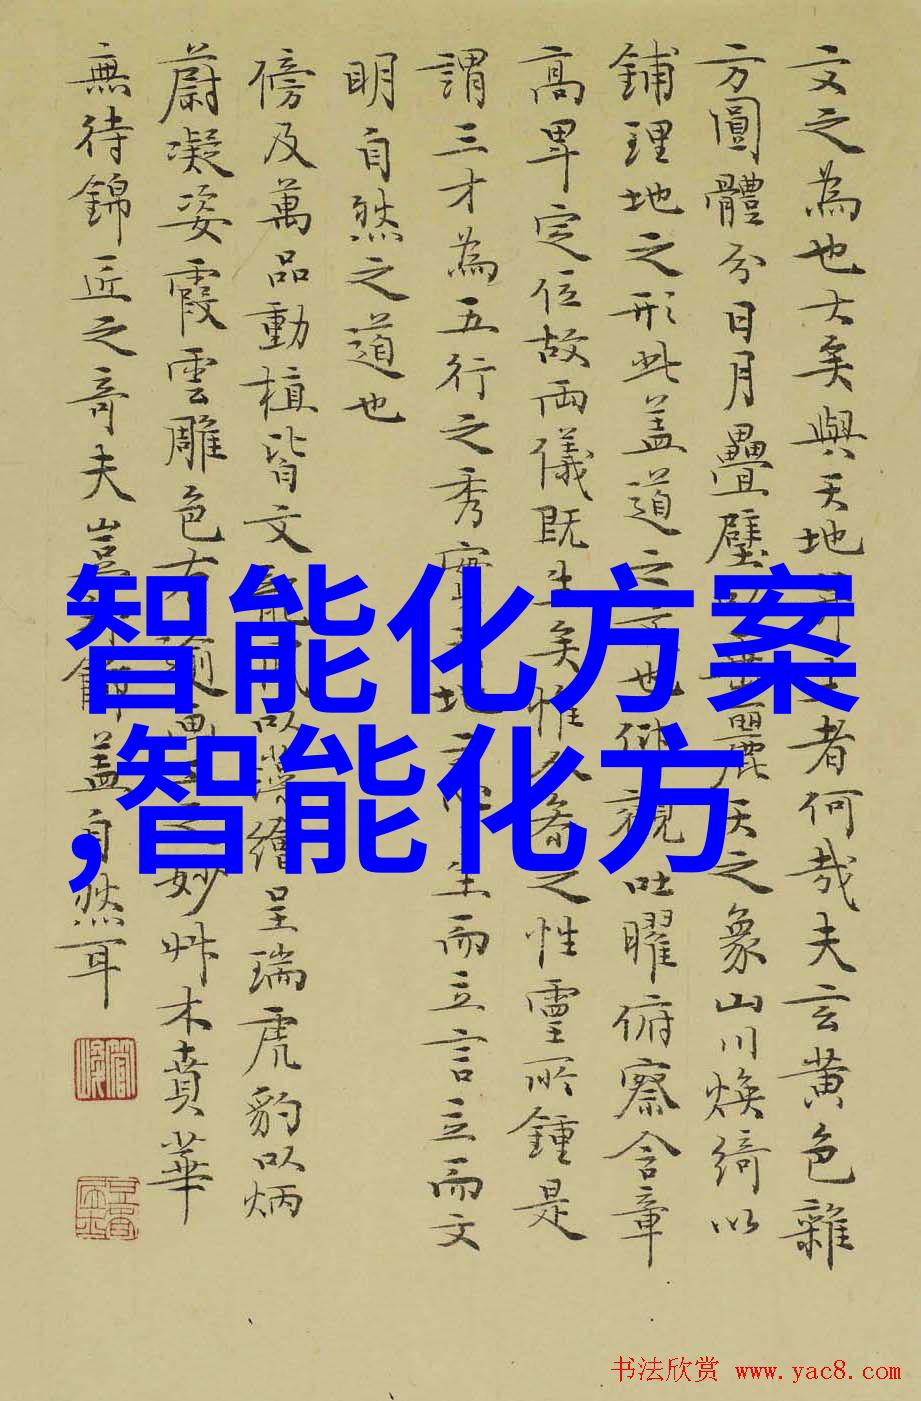 文之為也大矣與天地生者何哉夫玄黄色雜
方圓體分日月疊壁麗天之象山川煥綺以
鋪理地之形此蓋道之也観吐曜俯察含章
高卑定位故兩儀既生矣惟人参之性靈所鍾是
謂三才為五行之秀地生而立言立而文
明自然之道也
傍及萬品動植皆文以繪呈瑞虎豹以炳
蔚凝姿霞雲雕色之妙艸木賁華
無待錦匠之奇夫蓋自然耳
智能化方案
,智能化方
书法欣赏 www.yac8.com